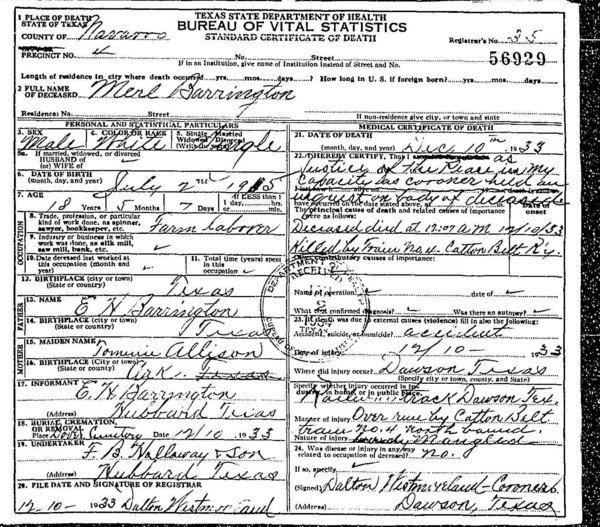 TEXAS STATE DEPARTMENT OF HEALTH
BUREAU OF VITAL STATISTICS
STANDARD CERTIFICATE OF DEATH
1 PLACE OF DEATH
STATE OF TEXAS
COUNTY OF Navarro
PRECINCT NO. 4
Registrar's No. 35
56929
No. Street
If in an Institution, give name of Institution instead of Street and No.
Length of residence in city where death occurred yrs. mos. days. ? How long in U. S. if foreign born? yrs. mos. days.
2 FULL NAME OF DECEASED Merl Barrington
Residence: No. Street
If non-residence give city, or town and state
PERSONAL AND STATISTICAL PARTICULARS
3. SEX Male
4. COLOR OR RACE White
5. Single Married Widowed Divorced (Write the word) Single
5a. If married, widowed, or divorced
HUSBAND OF
(or) WIFE OF
6. DATE OF BIRTH
(month, day, and year) July 2nd 1915
7. AGE 18 Years 5 Months 7 Days If LESS than 1 day
OCCUPATION
8. Trade, profession, or particular kind of work done, as spinner, sawyer, bookkeeper, etc. Farm Laborer
9. Industry or business in which work was done, as silk mill, saw mill, bank, etc.
10. Date deceased last worked at this occupation (month and year)
11. Total time (years) spent in this occupation
12. BIRTHPLACE (city or town)
(State or country) Texas
FATHER
13. NAME E H Barrington
14. BIRTHPLACE (City or town)
(State or country) Texas
MOTHER
15. MAIDEN NAME Allison
16. BIRTHPLACE (City or town)
(State or country) Ark.
17. INFORMANT E. H. Barrington
(Address) Hubbard Texas
18. BURIAL, CREMATION, OR REMOVAL
Place Cemetery Date 12/10 1933
19. UNDERTAKER F. B. Hallaway & Son
(Address) Hubbard Texas
20. FILE DATE AND SIGNATURE OF REGISTRAR
12-10- 1933 Dalton Westmoreland
MEDICAL CERTIFICATE OF DEATH
21. DATE OF DEATH
(month, day, and year) Dec, 10th 1933
22. I HEREBY CERTIFY, That I as
Justice of the Peace in my
Capacity as coroner held an
body of deceased
The principal cause of death and related causes of importance were as follows: Date of onset
Deceased died at 12:07 A M 12/10/33
Killed by Train No 4- Cotton Belt Ry.
Contributory causes of importance:
DEPARTMENT OF
RECEIVED
TEXAS
Name of operation
What test confirmed diagnosis Was there an autopsy?
23. If death was due to external causes (violence) fill in also the following:
Accident, suicide, or homicide? accident
Date of injury 12/10- 1933
Where did injury occur? Dawson Texas
(Specify city or town, county, and State)
Specify whether injury occurred in industry, in home or in public place
track Dawson Tex.
Manner of injury Over run by Cotton Belt
train No. 4 north bound
Nature of injury mangled
24. Was disease or injury in any way related to occupation of deceased? no.
If so, specify
(Signed) Dalton Westmoreland- Coroner
(Address) Dawson, Texas